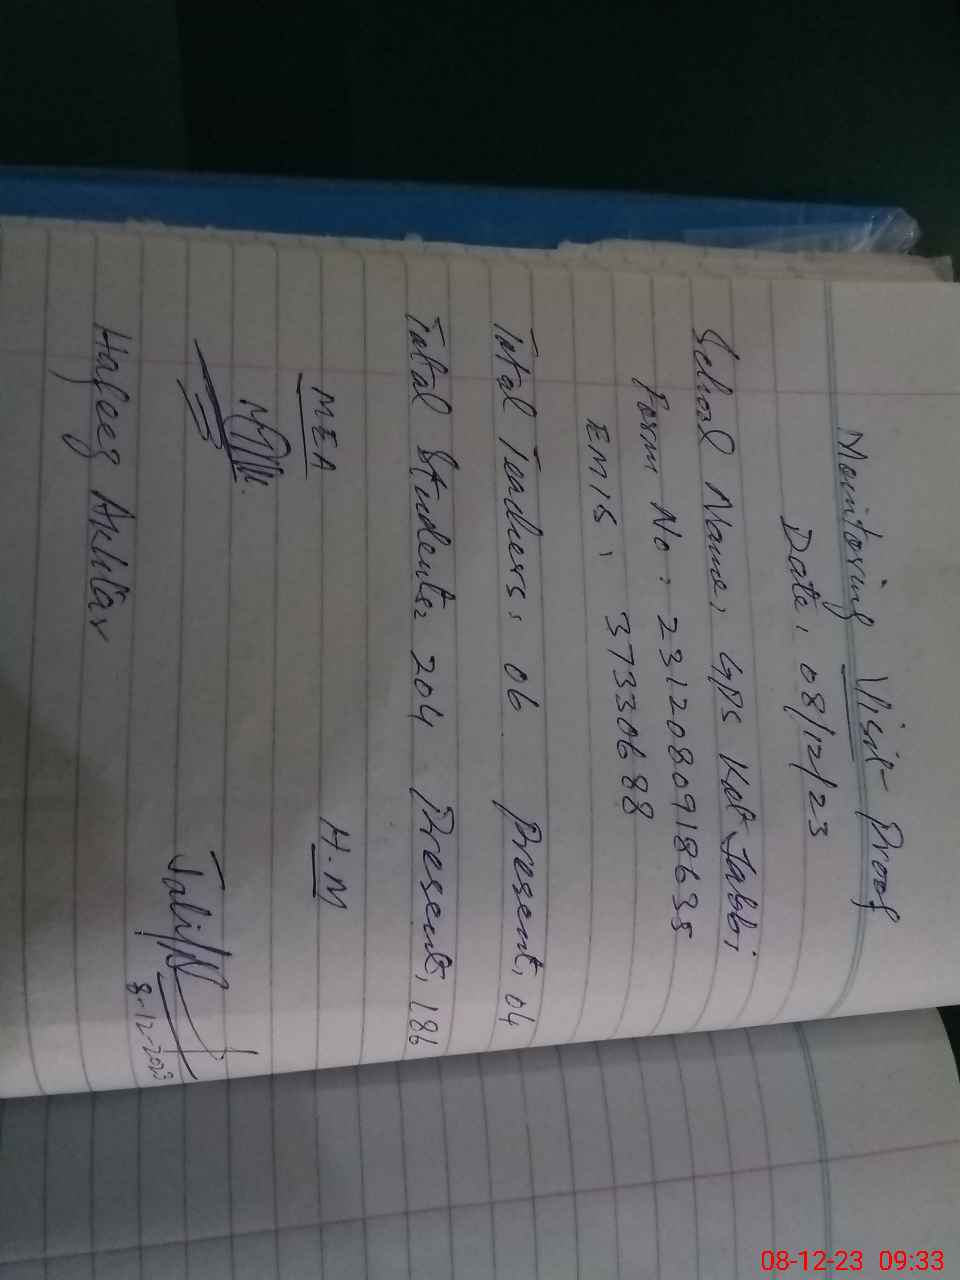 Monitoring Visit Proof
Date: 08/12/23
School Name: GPS Kot Jabbi
Form No: 2312080918635
EMIS: 37330688
Total Teachers: 06 Present: 04
Total Students: 204 Present: 186
MEA H.M
8-12-2023
Hafeez Akhtar
08-12-23 09:33